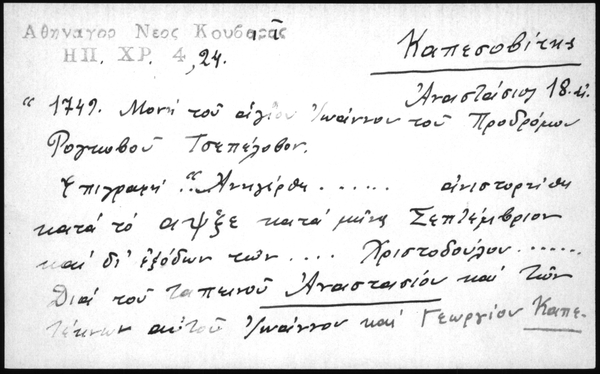 Αθηναγορ Νεος Κουβαρας
ΗΠ. ΧΡ. 4, 24.
Καπεσοβίτης
Ἀναστάσιος 18.
"1749. Μονή τοῦ ἁγίου Ἰωάννου τοῦ Προδρόμου
Ρογκοβοῦ Τσεπέλοβον.
Ἐπιγραφή "Ἀνηγέρθη ...... ἀνιστορήθη
κατά τό αψξε κατά μῆνα Σεπτέμβριον
καί δι' ἐξόδων τῶν .... Χριστοδούλου ......
Διά τοῦ ταπεινοῦ Ἀναστασίου καί τῶν
τέκνων αὐτοῦ Ἰωάννου καί Γεωργίου Καπε-